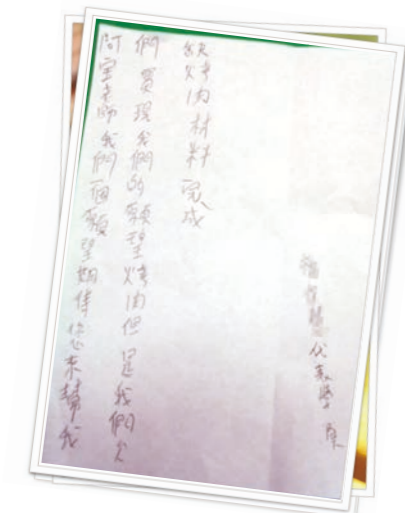 阿宝老師我們一個願望期待您來幫我
們實現我們的願望烤肉但是我們欠
缺烤肉材料完成